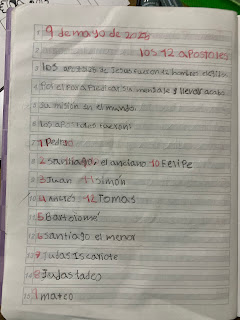 9 de mayo de 2025
los 12 apostoles
los apostoles de Jesus fueron 12 hombres
para predicar su mensaje y llevar acabo
su mision en el mundo.
los apostoles fueron:
1 Pedro
2 santiago, el anciano 10 Felipe
3 Juan 11 simón
4 Andres 12 Tomas
5 Bartolomé
6 santiago el menor
7 Judas Iscariote
8 Judas tadeo
9 mateo